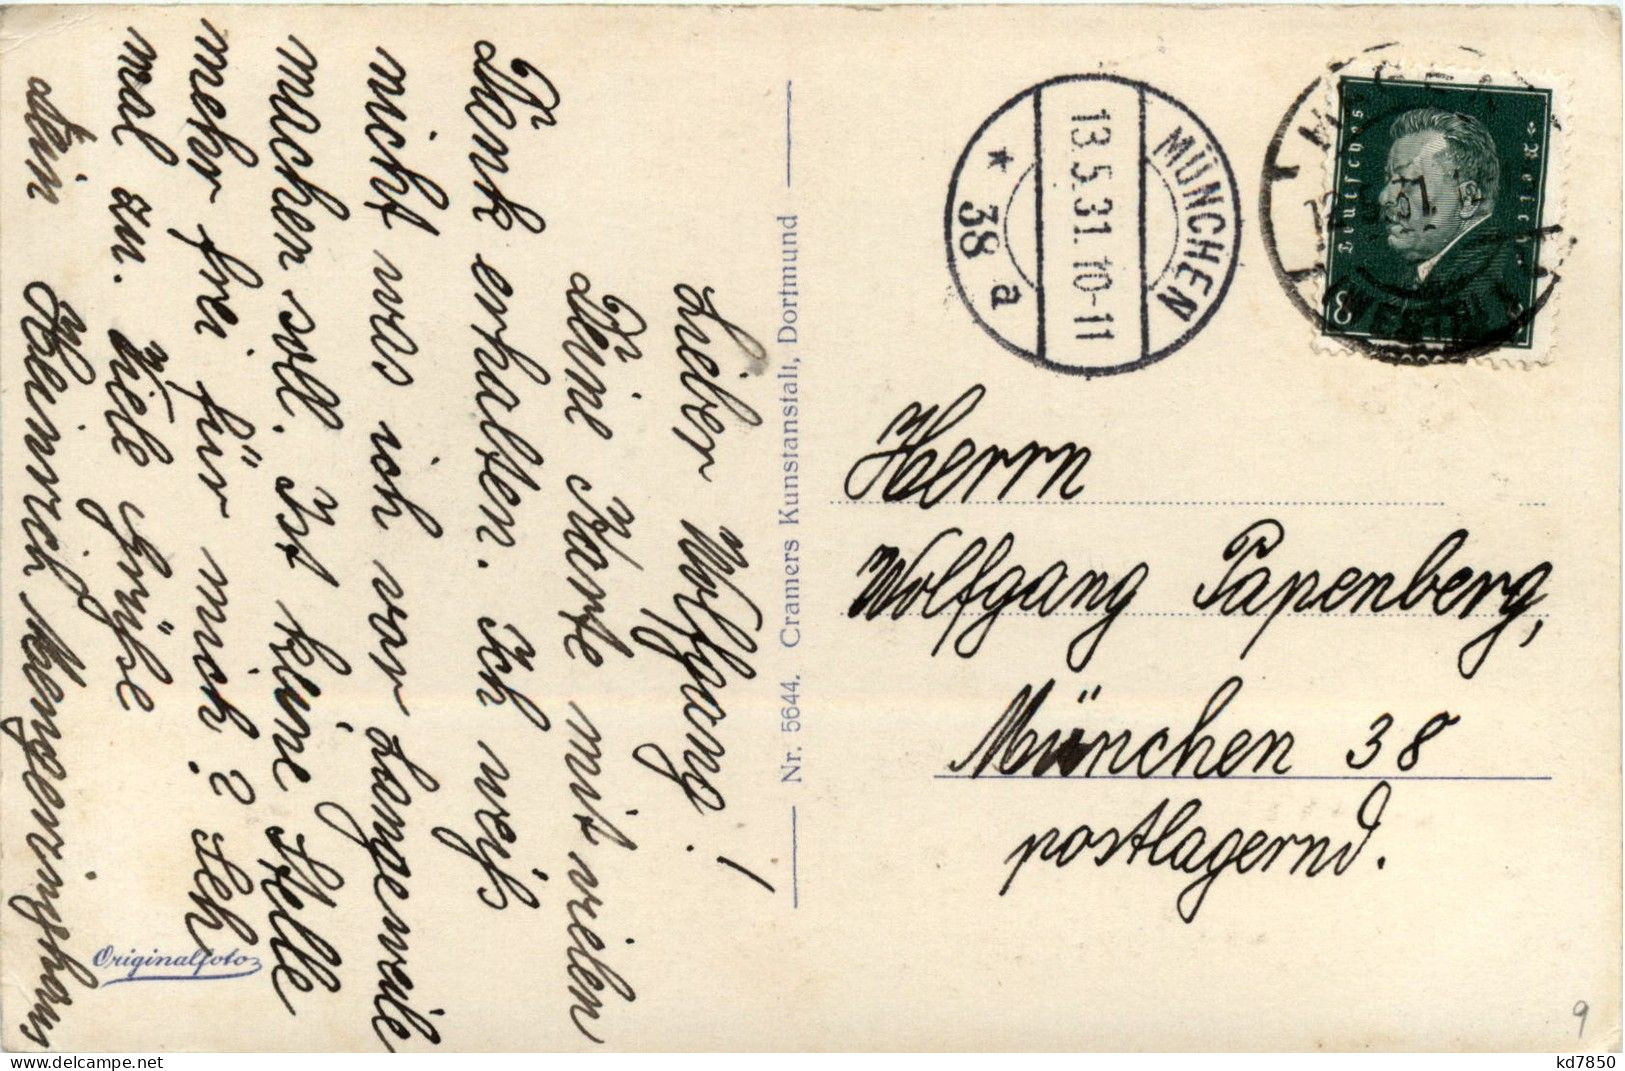 Lieber Wolfgang!
Deine Karte mit vielen
Dank erhalten. Ich weiß
nicht was ich vor Langeweile
machen soll. Ist keine Stelle
mehr frei für mich? Seh
mal zu. Viele Grüße
dein Heinrich
Originalfoto
Nr. 5644. Cramers Kunstanstalt, Dortmund
MÜNCHEN
13.5.31. 10-11
* 38 a
Deutsches Reich
8
(WESTF)
Herrn
Wolfgang Papenberg,
München 38
postlagernd.
9
kd7850